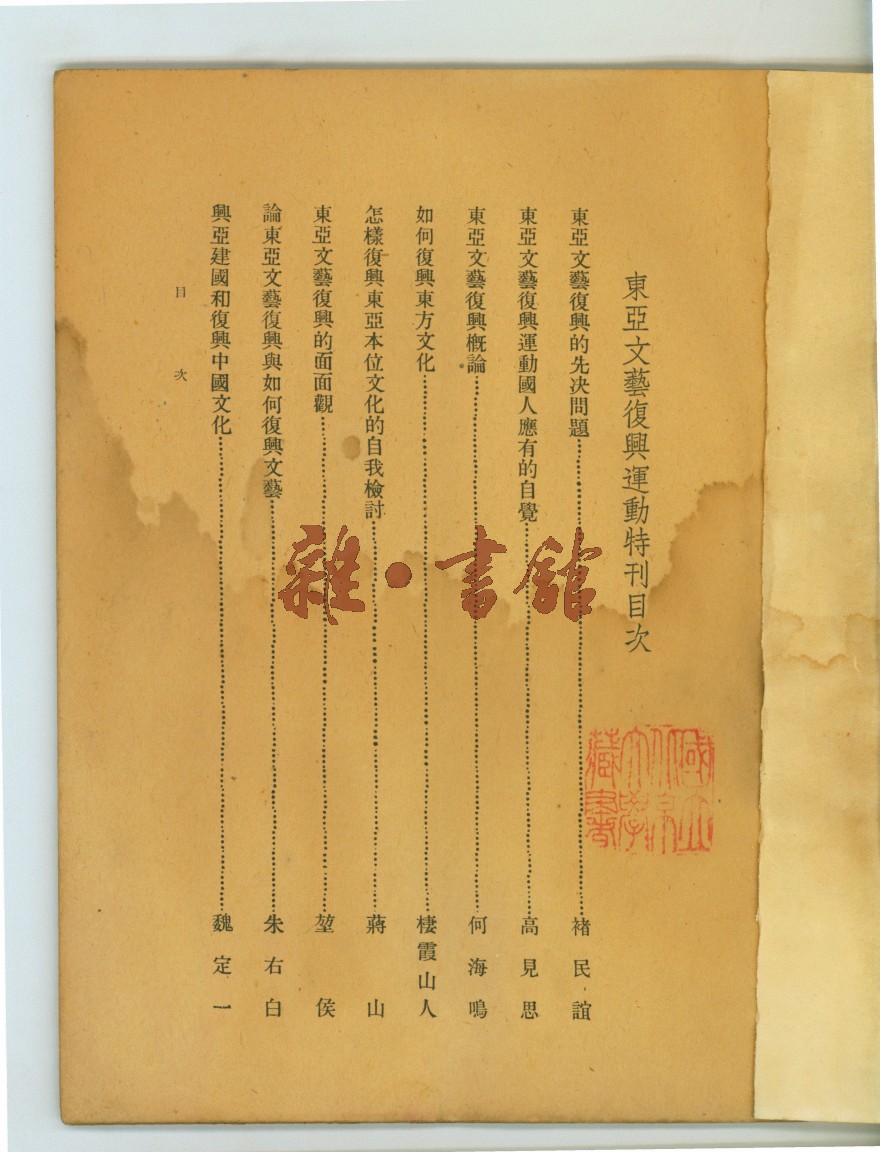 東亞文藝復興運動特刊目次
東亞文藝復興的先決問題……褚民誼
東亞文藝復興運動國人應有的自覺……高見思
東亞文藝復興概論……何海鳴
如何復興東方文化……棲霞山人
怎樣復興東亞本位文化的自我檢討……蔣山
東亞文藝復興的面面觀……堃侯
論東亞文藝復興與如何復興文藝……朱右白
興亞建國和復興中國文化……魏定一
目次
雜·書館
國立北京大學藏書